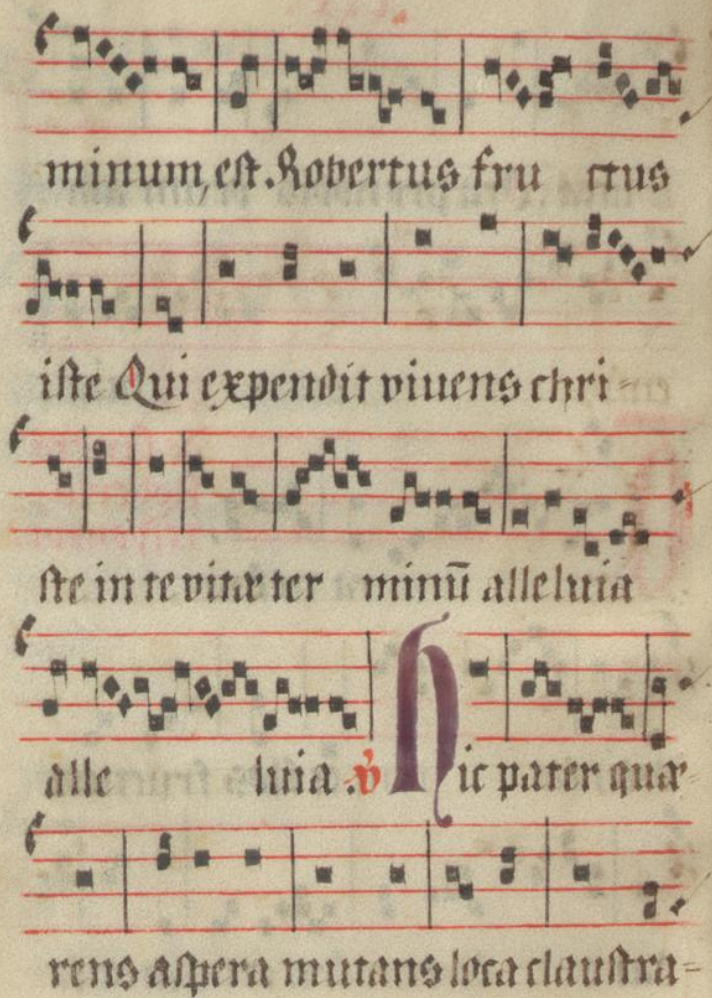 minum, est. Robertus fru ctus
iste Qui expendit viuens chri=
ste in te vitæ ter minū alleluia
alle luia . ℣ Hic pater quæ
rens aspera mutans loca claustra=